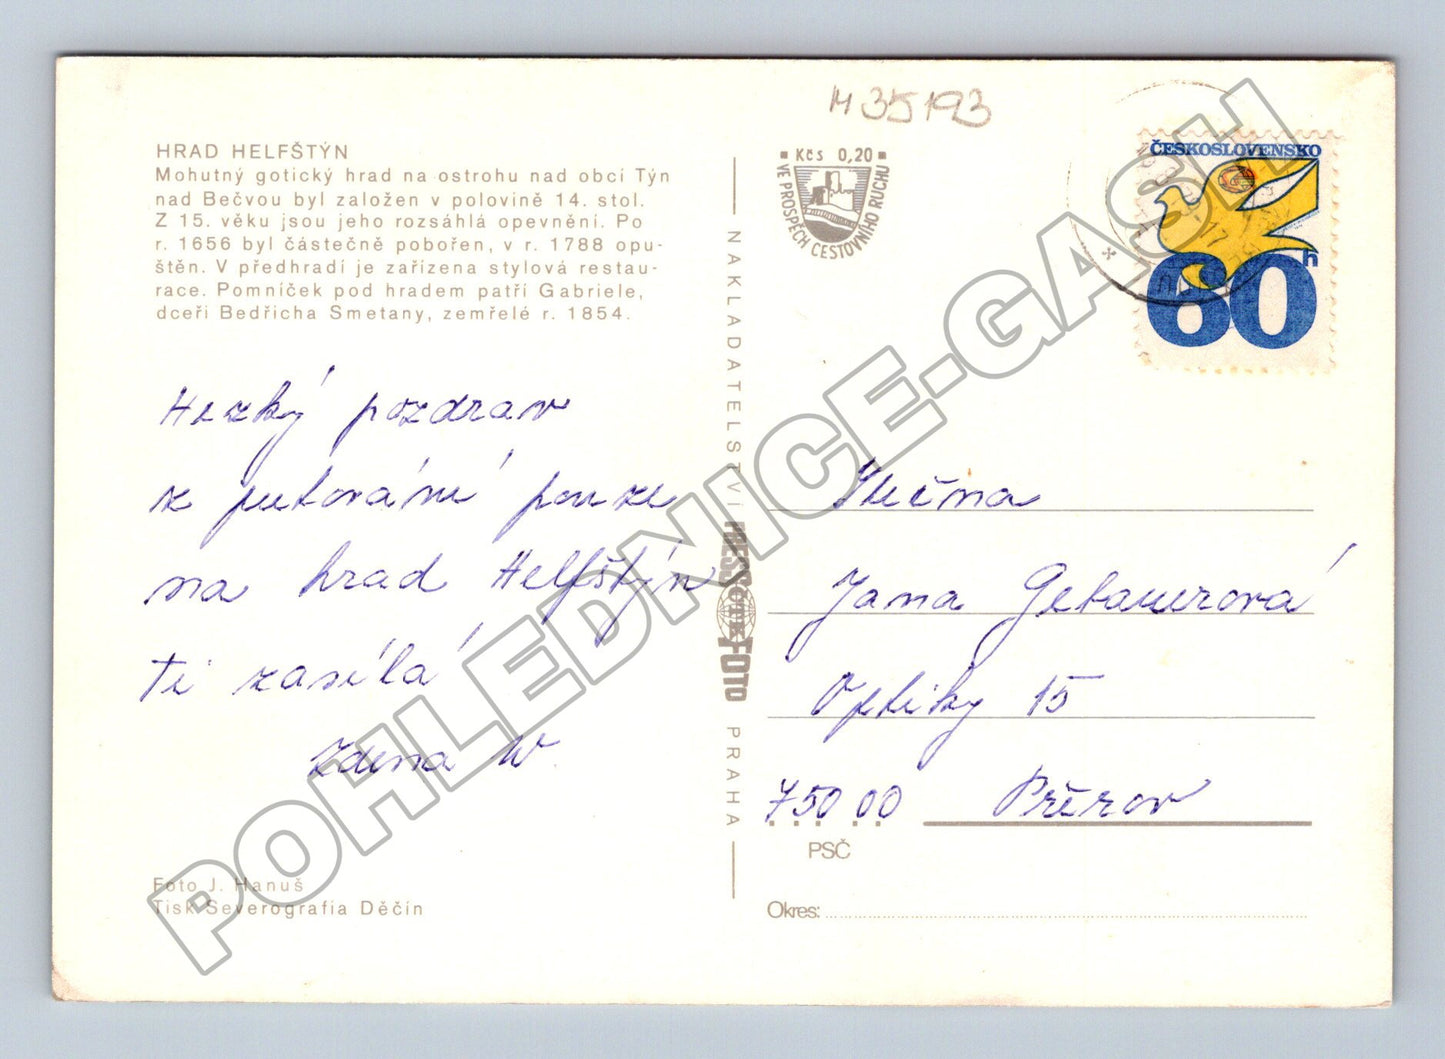 HRAD HELFŠTÝN
Mohutný gotický hrad na ostrohu nad obcí Týn
nad Bečvou byl založen v polovině 14. stol.
Z 15. věku jsou jeho rozsáhlá opevnění. Po
r. 1656 byl částečně pobořen, v r. 1788 opu-
štěn. V předhradí je zařízena stylová restau-
race. Pomníček pod hradem patří Gabriele,
dceři Bedřicha Smetany, zemřelé r. 1854.
Hezký pozdrav
z putování pouze
na hrad Helfštýn
Ti zasílá
Zdena W.
Foto J. Hanuš
Tisk Severografia Děčín
NAKLADATELSTVÍ PRESSFOTO PRAHA
ČTK
M 35193
Kčs 0,20
VE PROSPĚCH CESTOVNÍHO RUCHU
ČESKOSLOVENSKO
60 h
Slečna
Jana Gebauerová
Optiky 15
750 00 Přerov
PSČ
Okres:
POHLEDNICE-GASH